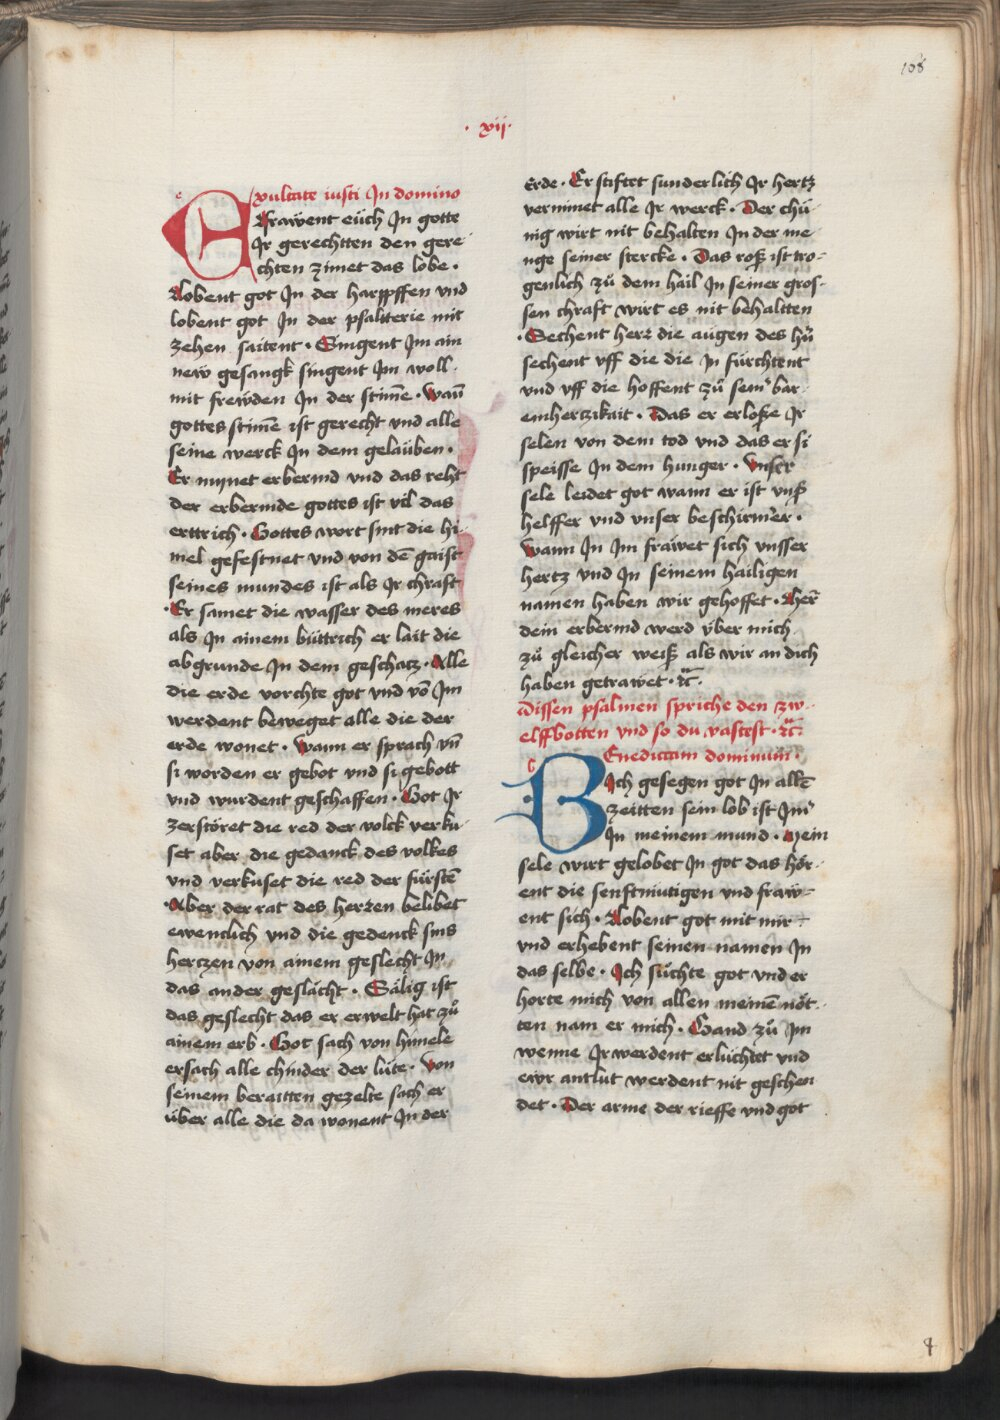 108
· xij ·
Exultate iusti In domino
Frawent eüch In gotte
Ir gerechtten den gere
chten zimet das lobe ·
Lobent got In der harppffen vnd
lobent got In der psalterie mit
zehen saitent · Singent Im ain
new gesangk singent Im woll
mit frewden In der stim̄e · wan̄
gottes stim̄e ist gerecht vnd alle
seine werck In dem gelaüben ·
Er mynet erbermd vnd das reht
der erbermde gottes ist vol das
erttrich · Gottes wort sint die hi
mel gefestnet vnd von dē gaist
seines mundes ist als Ir chraft
· Er samet die wasser des meres
als In ainem büttrich er lait die
abgrunde In dem geschatz · Alle
die erde vorchte got vnd vō Im
werdent beweget alle die der
erde wonet · wann er sprach vn̄
si worden er gebot vnd si gebott
vnd wurdent geschaffen · Got Ir
zerstöret die red der volck verku
set aber die gedanck des volkes
vnd verkuset die red der fürstē
· Aber der rat des herzen belibet
ewenclich vnd die gedenck sins
hertzen von ainem geslecht In
das ander geslächt · Sälig ist
das geslecht das er erwelt hat zů
ainem erb · Got sach von himele
ersach alle chinder der lüte · von
seinem beraitten gezelte sach er
über alle die da wonent In der
erde · Er stiftet sunderlich Ir hertz
vernimet alle Ir werck · Der chü
nig wirt nit behalten In der me
nge seiner stercke · Das roß ist tro
genlich zů dem hail In seiner gros
sen chraft wirt es nit behaltten
· Sechent herr die augen des hn̄
sechent vff die die In fürchtent
vnd vff die hoffent zů sein' bar
emhertzikait · Das er erloße Ir
selen von dem tod vnd das er si
speisse In dem hunger · Vnser
sele leidet got wann er ist vnß
helffer vnd vnser beschirmer ·
wann In Im fräwet sich vnsser
hertz vnd In seinem hailigen
namen haben wir gehoffet · Her̄
dein erbermd werd über mich
zů gleicher weiß als wir an dich
haben getrawet · ꝛc̄ ·
Dissen psalmen spriche den zw
elffbotten vnd so du vastest · ꝛc̄ ·
Benedicam dominum ·
Ich gesegen got In allē
zeitten sein lob ist Im̄'
In meinem mund · Mein
sele wirt gelobet In got das hör
ent die senftmütigen vnd fraw
ent sich · Lobent got mit mir
vnd erhebent seinen namen In
das selbe · Ich süchte got vnd er
horte mich von allen meinē nöt
ten nam er mich · Gand zů Im
wenne Ir werdent erlüchtet vnd
ewr antlut werdent nit geschen
det · Der arme der rieffe vnd got